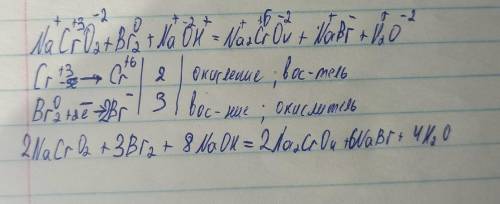 Na⁺Cr⁺³O₂⁻² + Br₂⁰ + Na⁺O⁻²H⁺ = Na₂⁺Cr⁺⁶O₄⁻² + Na⁺Br⁻ + H₂⁺O⁻²
Cr⁺³ -3e̅ → Cr⁺⁶ | 2 | окисление; вос-тель
Br₂⁰ + 2e̅ → 2Br⁻ | 3 | вос-ние; окислитель
2NaCrO₂ + 3Br₂ + 8NaOH = 2Na₂CrO₄ + 6NaBr + 4H₂O